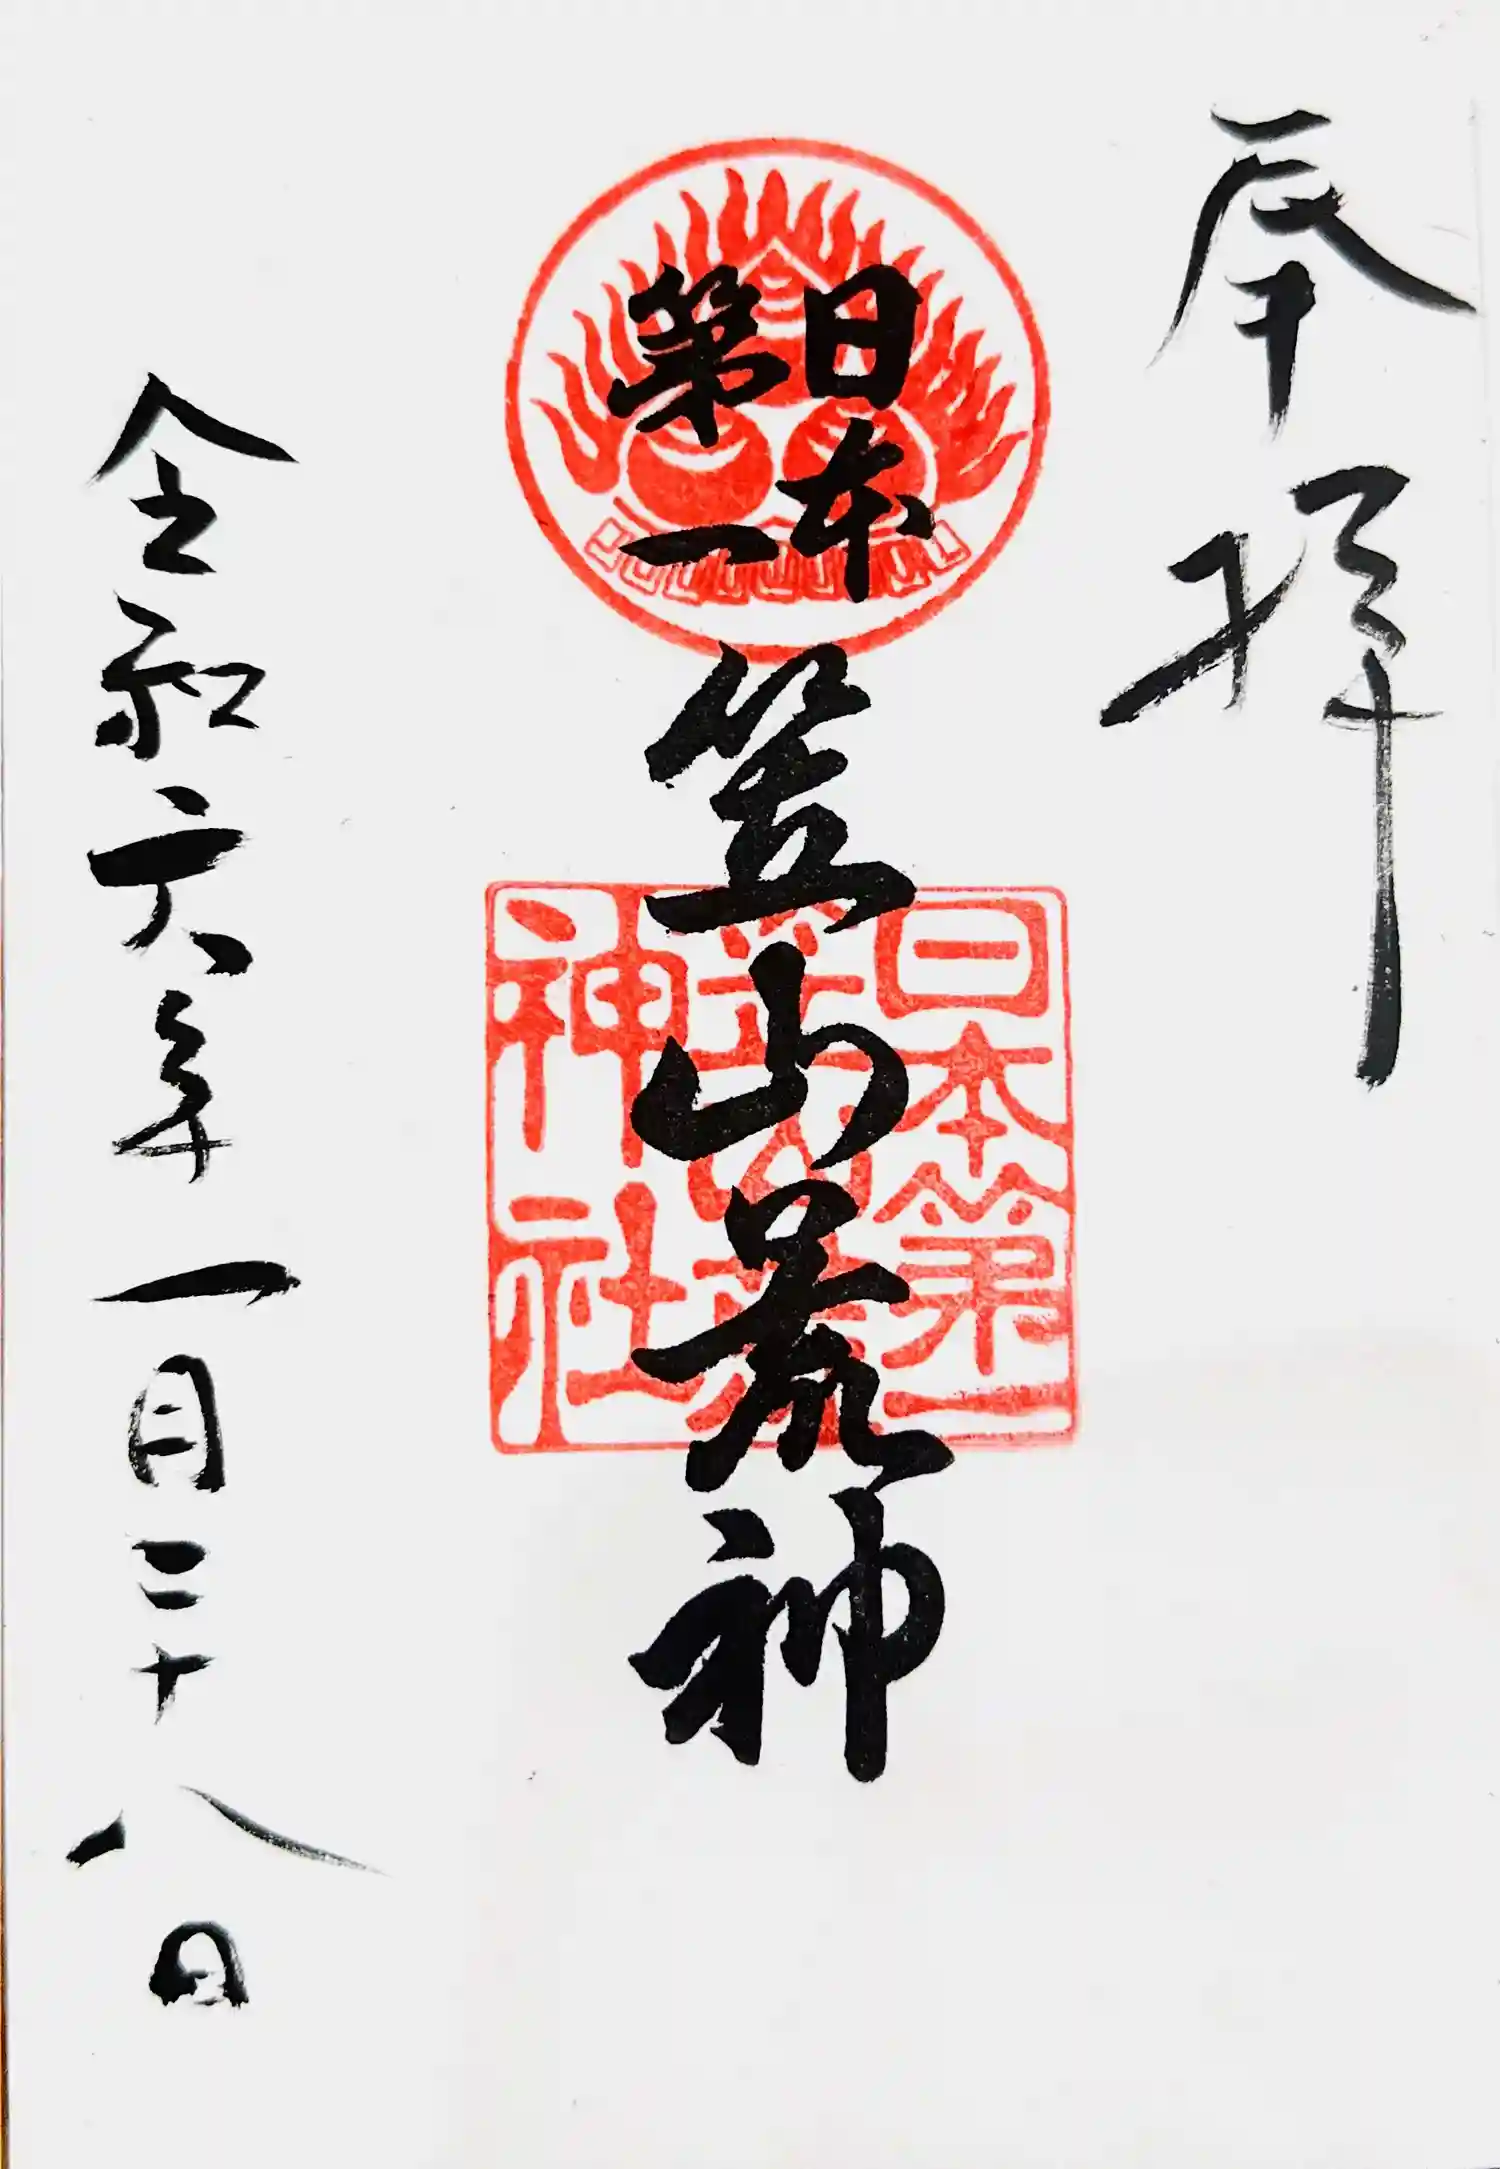 奉拝
日本
第一
笠山荒神
日本第一
笠山荒
神社
令和六年一月二十八日